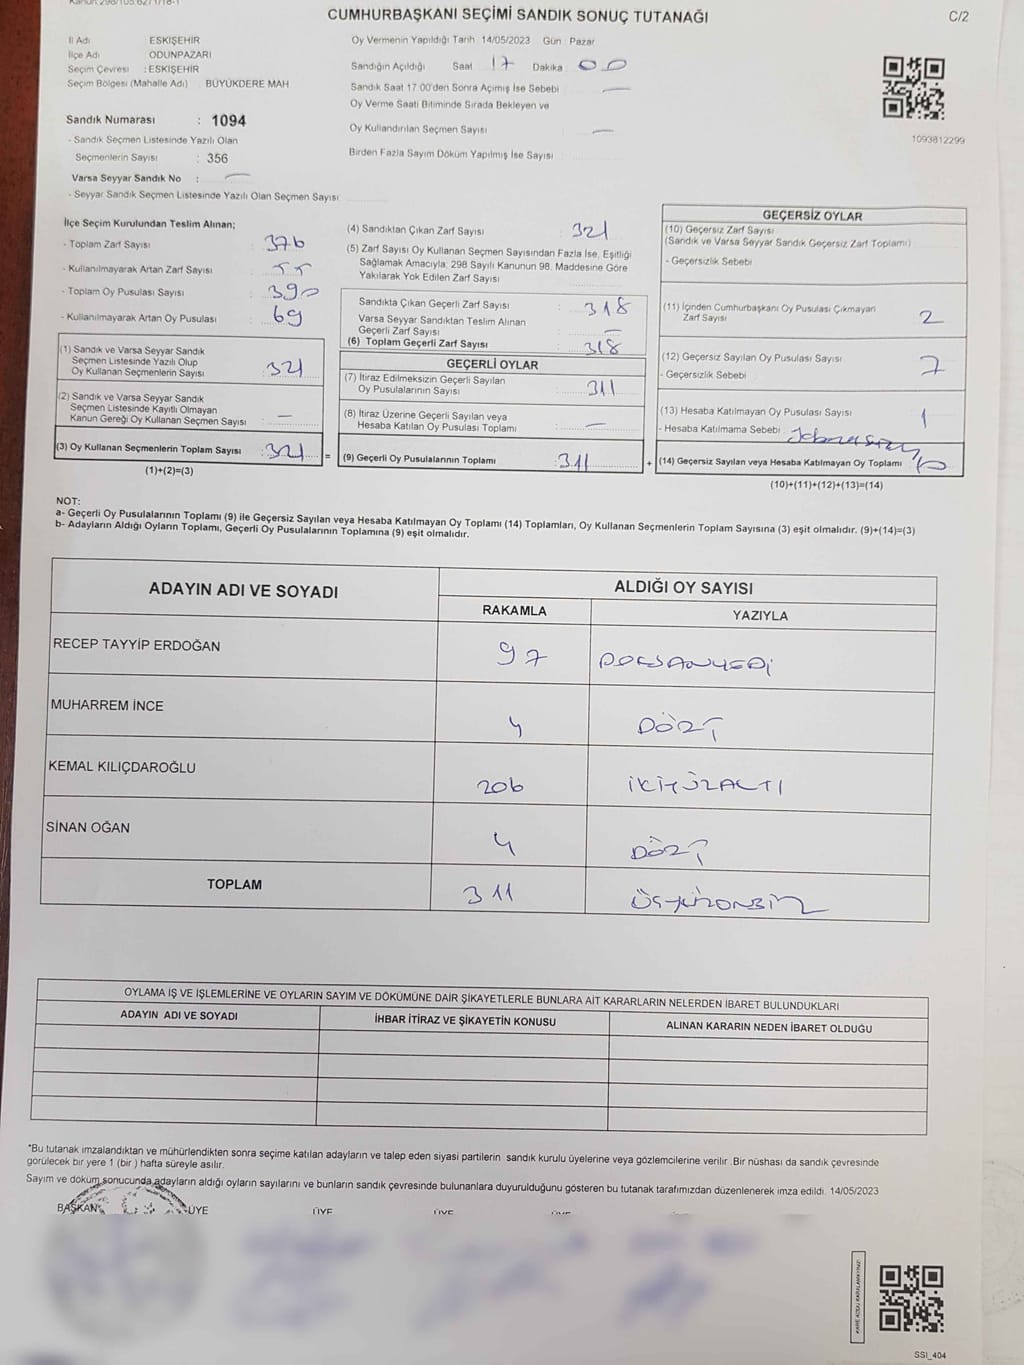 Kanun:298/105.627/1/18-1
CUMHURBAŞKANI SEÇİMİ SANDIK SONUÇ TUTANAĞI
C/2
İl Adı ESKİŞEHİR
İlçe Adı ODUNPAZARI
Seçim Çevresi : ESKİŞEHİR
Seçim Bölgesi (Mahalle Adı) BÜYÜKDERE MAH
Sandık Numarası : 1094
- Sandık Seçmen Listesinde Yazılı Olan
Seçmenlerin Sayısı : 356
Varsa Seyyar Sandık No : —
- Seyyar Sandık Seçmen Listesinde Yazılı Olan Seçmen Sayısı
Oy Vermenin Yapıldığı Tarih 14/05/2023 Gün Pazar
Sandığın Açıldığı Saat 17 Dakika 00
Sandık Saat 17:00'den Sonra Açımış İse Sebebi —
Oy Verme Saati Bitiminde Sırada Bekleyen ve
Oy Kullandırılan Seçmen Sayısı —
Birden Fazla Sayım Döküm Yapılmış İse Sayısı
1093812299
İlçe Seçim Kurulundan Teslim Alınan;
- Toplam Zarf Sayısı : 376
- Kullanılmayarak Artan Zarf Sayısı : 55
- Toplam Oy Pusulası Sayısı : 390
- Kullanılmayarak Artan Oy Pusulası : 69
(1) Sandık ve Varsa Seyyar Sandık
Seçmen Listesinde Yazılı Olup
Oy Kullanan Seçmenlerin Sayısı : 321
(2) Sandık ve Varsa Seyyar Sandık
Seçmen Listesinde Kayıtlı Olmayan
Kanun Gereği Oy Kullanan Seçmen Sayısı : —
(3) Oy Kullanan Seçmenlerin Toplam Sayısı : 321
(1)+(2)=(3)
(4) Sandıktan Çıkan Zarf Sayısı : 321
(5) Zarf Sayısı Oy Kullanan Seçmen Sayısından Fazla İse, Eşitliği
Sağlamak Amacıyla; 298 Sayılı Kanunun 98. Maddesine Göre
Yakılarak Yok Edilen Zarf Sayısı
Sandıkta Çıkan Geçerli Zarf Sayısı : 318
Varsa Seyyar Sandıktan Teslim Alınan
Geçerli Zarf Sayısı : —
(6) Toplam Geçerli Zarf Sayısı : 318
GEÇERLİ OYLAR
(7) İtiraz Edilmeksizin Geçerli Sayılan
Oy Pusulalarının Sayısı : 311
(8) İtiraz Üzerine Geçerli Sayılan veya
Hesaba Katılan Oy Pusulası Toplamı : —
= (9) Geçerli Oy Pusulalarının Toplamı : 311 +
GEÇERSİZ OYLAR
(10) Geçersiz Zarf Sayısı
(Sandık ve Varsa Seyyar Sandık Geçersiz Zarf Toplamı)
- Geçersizlik Sebebi
(11) İçinden Cumhurbaşkanı Oy Pusulası Çıkmayan
Zarf Sayısı 2
(12) Geçersiz Sayılan Oy Pusulası Sayısı 7
- Geçersizlik Sebebi
(13) Hesaba Katılmayan Oy Pusulası Sayısı 1
- Hesaba Katılmama Sebebi
(14) Geçersiz Sayılan veya Hesaba Katılmayan Oy Toplamı 10
(10)+(11)+(12)+(13)=(14)
NOT:
a- Geçerli Oy Pusulalarının Toplamı (9) ile Geçersiz Sayılan veya Hesaba Katılmayan Oy Toplamı (14) Toplamları, Oy Kullanan Seçmenlerin Toplam Sayısına (3) eşit olmalıdır. (9)+(14)=(3)
b- Adayların Aldığı Oyların Toplamı, Geçerli Oy Pusulalarının Toplamına (9) eşit olmalıdır.
ADAYIN ADI VE SOYADI ALDIĞI OY SAYISI
RAKAMLA YAZIYLA
RECEP TAYYİP ERDOĞAN 97 DOKSANYEDİ
MUHARREM İNCE 4 DÖRT
KEMAL KILIÇDAROĞLU 206 İKİYÜZALTI
SİNAN OĞAN 4 DÖRT
TOPLAM 311 ÜÇYÜZONBİR
OYLAMA İŞ VE İŞLEMLERİNE VE OYLARIN SAYIM VE DÖKÜMÜNE DAİR ŞİKAYETLERLE BUNLARA AİT KARARLARIN NELERDEN İBARET BULUNDUKLARI
ADAYIN ADI VE SOYADI İHBAR İTİRAZ VE ŞİKAYETİN KONUSU ALINAN KARARIN NEDEN İBARET OLDUĞU
*Bu tutanak imzalandıktan ve mühürlendikten sonra seçime katılan adayların ve talep eden siyasi partilerin sandık kurulu üyelerine veya gözlemcilerine verilir. Bir nüshası da sandık çevresinde
görülecek bir yere 1 (bir) hafta süreyle asılır.
Sayım ve döküm sonucunda adayların aldığı oyların sayılarını ve bunların sandık çevresinde bulunanlara duyurulduğunu gösteren bu tutanak tarafımızdan düzenlenerek imza edildi. 14/05/2023
BAŞKAN ÜYE ÜYE ÜYE ÜYE
SSI_404